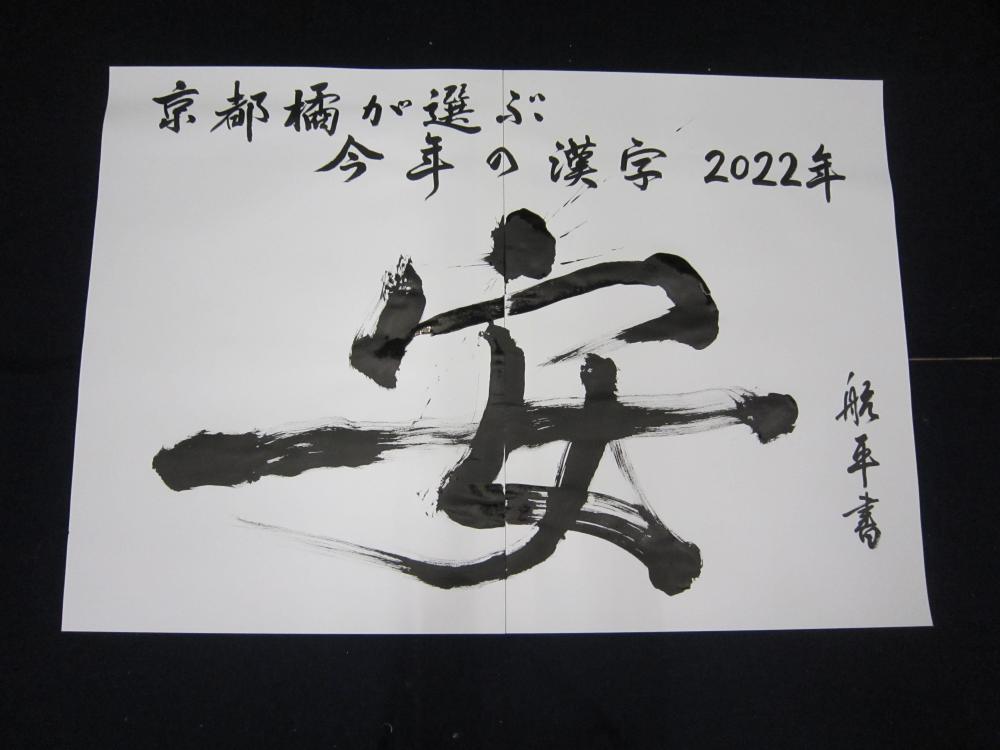 京都橘が選ぶ
今年の漢字 2022年
安
航平書